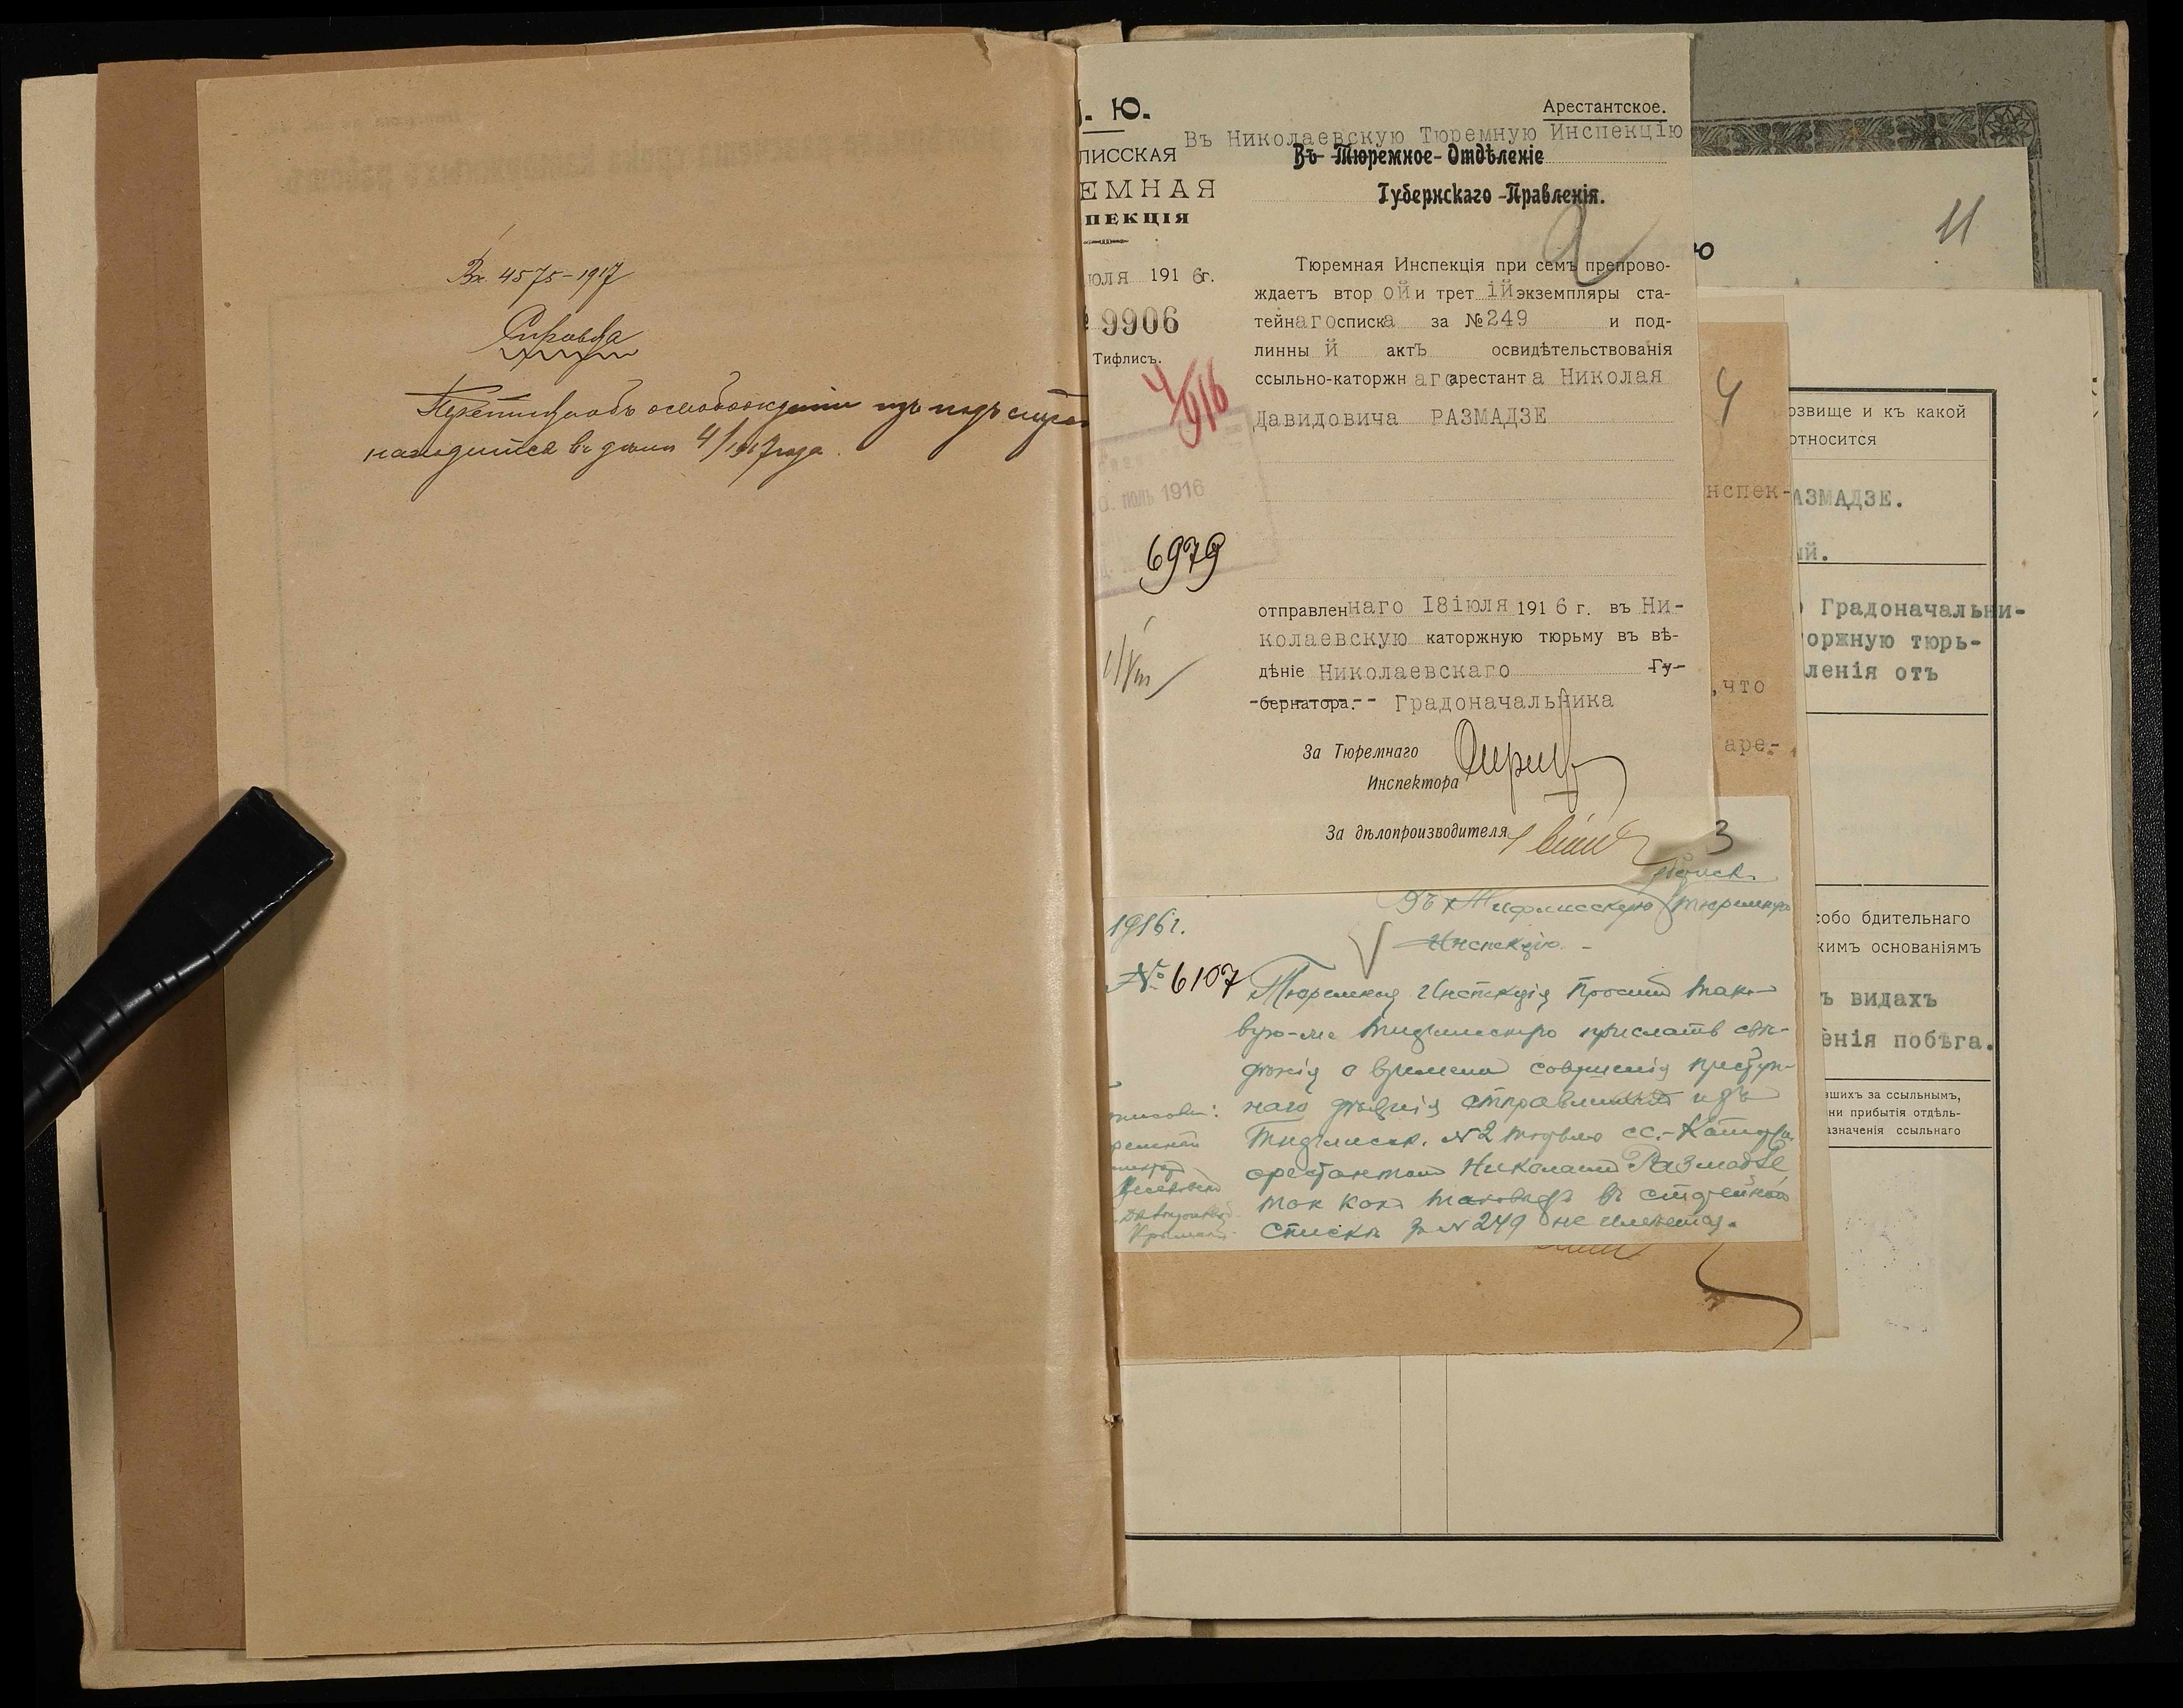 Вх. 4575-1917
Справка
Переписка объ освобожденіи изъ подъ стражи
находится въ дѣлѣ 4/1917 года.
. Ю.
ЛИССКАЯ
ЕМНАЯ
ПЕКЦІЯ
юля 1916г.
9906
Тифлисъ.
4/916
июль 1916
6979
Арестантское.
Въ Николаевскую Тюремную Инспекцію
Въ Тюремное Отдѣленіе
Губернскаго Правленія.
2
Тюремная Инспекція при семъ препрово-
ждаетъ второй и третій экземпляры ста-
тейнаго списка за №249 и под-
линный актъ освидѣтельствованія
ссыльно-каторжнаго арестанта Николая
Давидовича РАЗМАДЗЕ
отправленнаго 18 іюля 1916 г. въ Ни-
колаевскую каторжную тюрьму въ вѣ-
дѣніе Николаевскаго Гу-
бернатора. Градоначальника
За Тюремнаго
Инспектора
За дѣлопроизводителя
3
1916 г.
№ 6107
Въ Тифлисскую Тюремную
Инспекцію.
Тюремная Инспекція проситъ тако-
вую-же Тифлисскую прислать свѣ-
дѣнія о времени совершенія преступ-
наго дѣянія отправленнаго изъ
Тифлисск. №2 тюрьмы сс.-каторжн.
арестантомъ Николаемъ Размадзе
такъ какъ таковыхъ въ статейномъ
спискѣ за №249 не имѣется.
4
нспек-
,что
аре-
11
ю
озвище и къ какой
относится
АЗМАДЗЕ.
ій.
Градоначальни-
оржную тюрь-
ленія отъ
собо бдительнаго
кимъ основаніямъ
ъ видахъ
енія побѣга.
вшихъ за ссыльнымъ,
ни прибытія отдѣль-
азначенія ссыльнаго